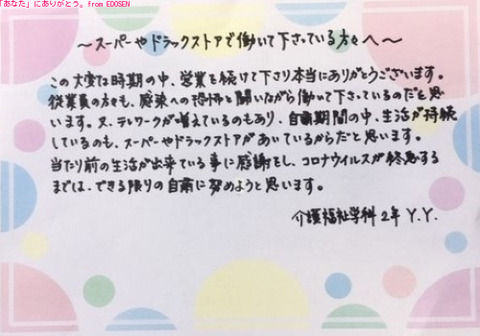 「あなた」にありがとう。from EDOSEN
～スーパーやドラックストアで働いて下さっている方々へ～
この大変な時期の中、営業を続けて下さり本当にありがとうございます。
従業員の方々も、感染への恐怖と闘いながら働いて下さっているのだと思
います。又、テレワークが増えているのもあり、自粛期間の中、生活が持続
しているのも、スーパーやドラックストアがあいているからだと思います。
当たり前の生活が出来ている事に感謝をし、コロナウイルスが終息する
までは、できる限りの自粛に努めようと思います。
介護福祉学科2年 Y.Y.